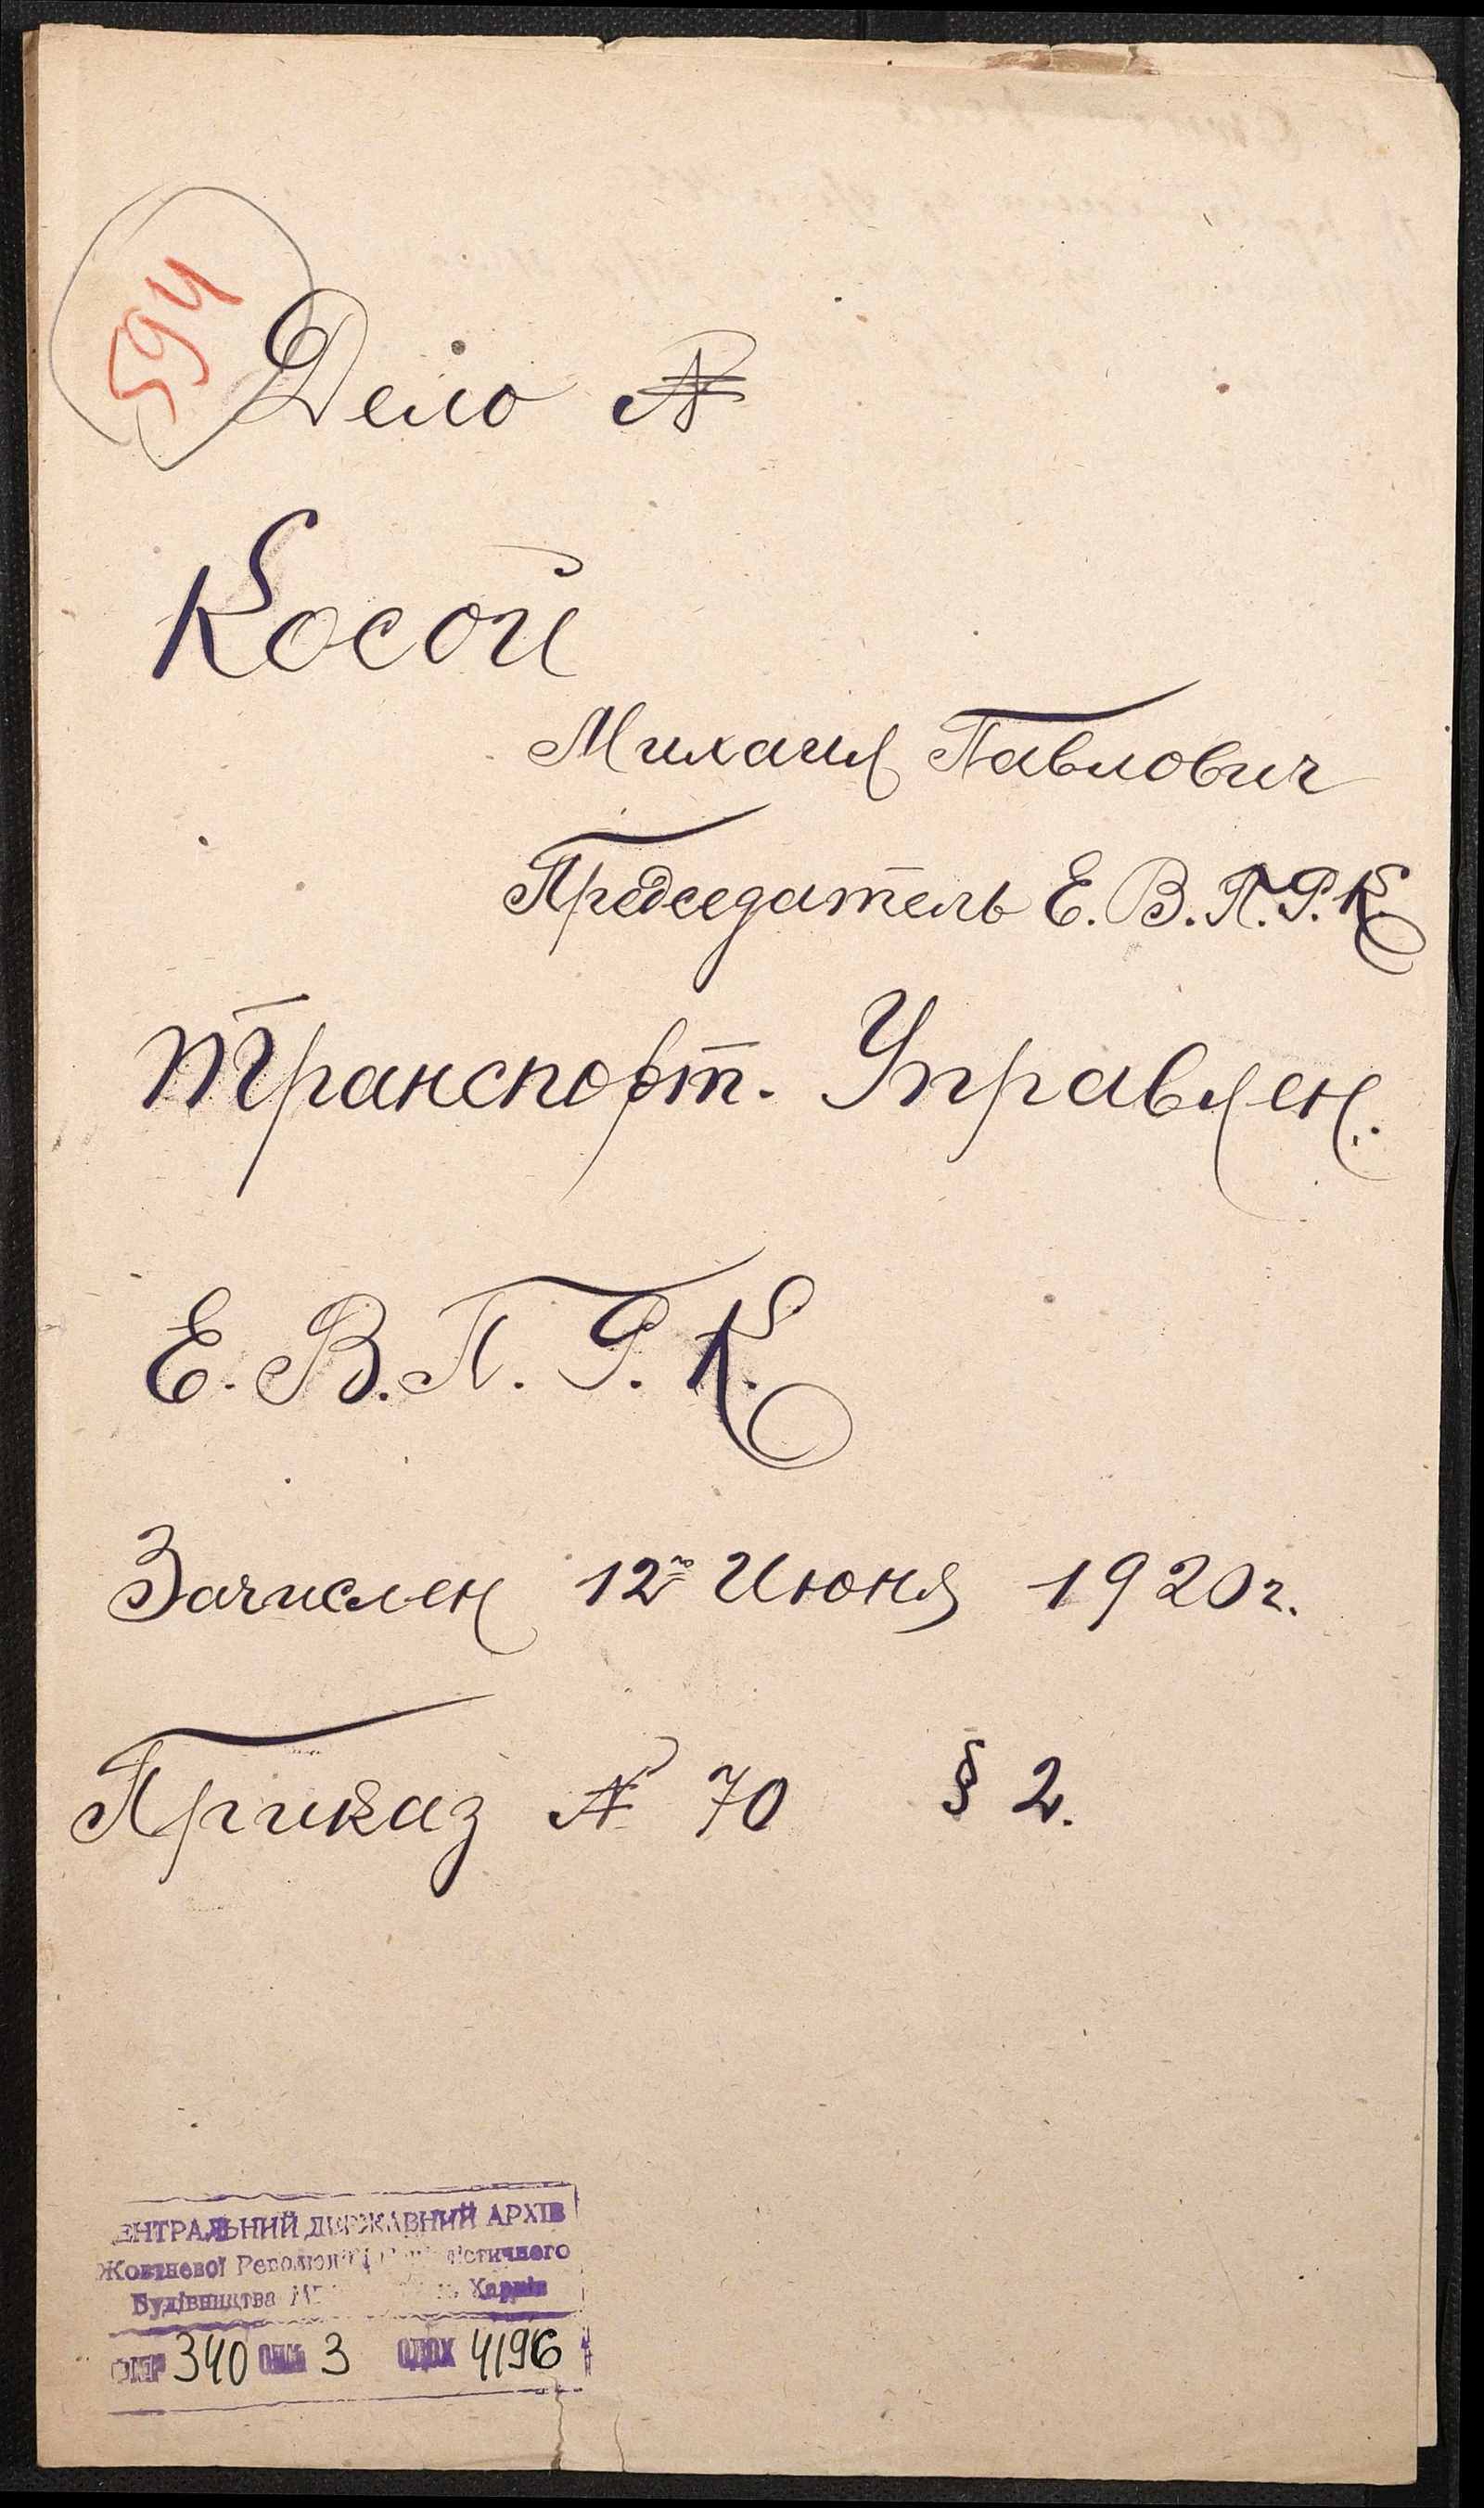 594
Дело №
Косой
Михаил Павлович
Председатель Е. В. П. Р. К.
Транспорт. Управлен.
Е. В. П. Р. К.
Зачислен 12го Июня 1920 г.
Приказ № 70 § 2.
ЕНТРАЛЬНИЙ ДЕРЖАВНИЙ АРХІВ
Жовтневої Революції
Будівництва Харків
340 3 4196